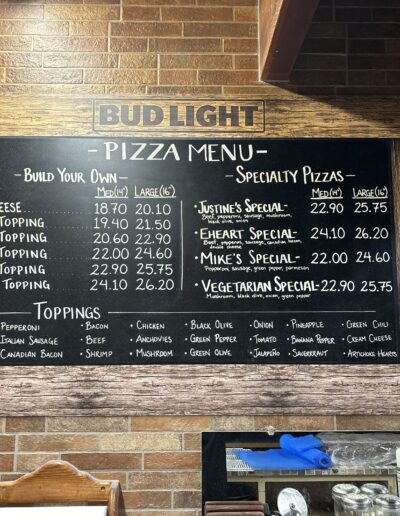 BUD LIGHT
- PIZZA MENU -
- BUILD YOUR OWN -
MED(14") LARGE(16")
EESE 18.70 20.10
TOPPING 19.40 21.50
TOPPING 20.60 22.90
TOPPING 22.00 24.60
TOPPING 22.90 25.75
TOPPING 24.10 26.20
- SPECIALTY PIZZAS -
MED(14") LARGE(16")
• JUSTINE'S SPECIAL- 22.90 25.75
Beef, pepperoni, sausage, mushroom,
black olive, onion
• EHEART SPECIAL- 24.10 26.20
Beef, pepperoni, sausage, canadian bacon,
double cheese
• MIKE'S SPECIAL- 22.00 24.60
Pepperoni, sausage, green pepper, parmesan
• VEGETARIAN SPECIAL- 22.90 25.75
Mushroom, black olive, onion, green pepper
TOPPINGS
PEPPERONI • BACON • CHICKEN • BLACK OLIVE • ONION • PINEAPPLE • GREEN CHILI
ITALIAN SAUSAGE • BEEF • ANCHOVIES • GREEN PEPPER • TOMATO • BANANA PEPPER • CREAM CHEESE
CANADIAN BACON • SHRIMP • MUSHROOM • GREEN OLIVE • JALAPEÑO • SAUERKRAUT • ARTICHOKE HEARTS